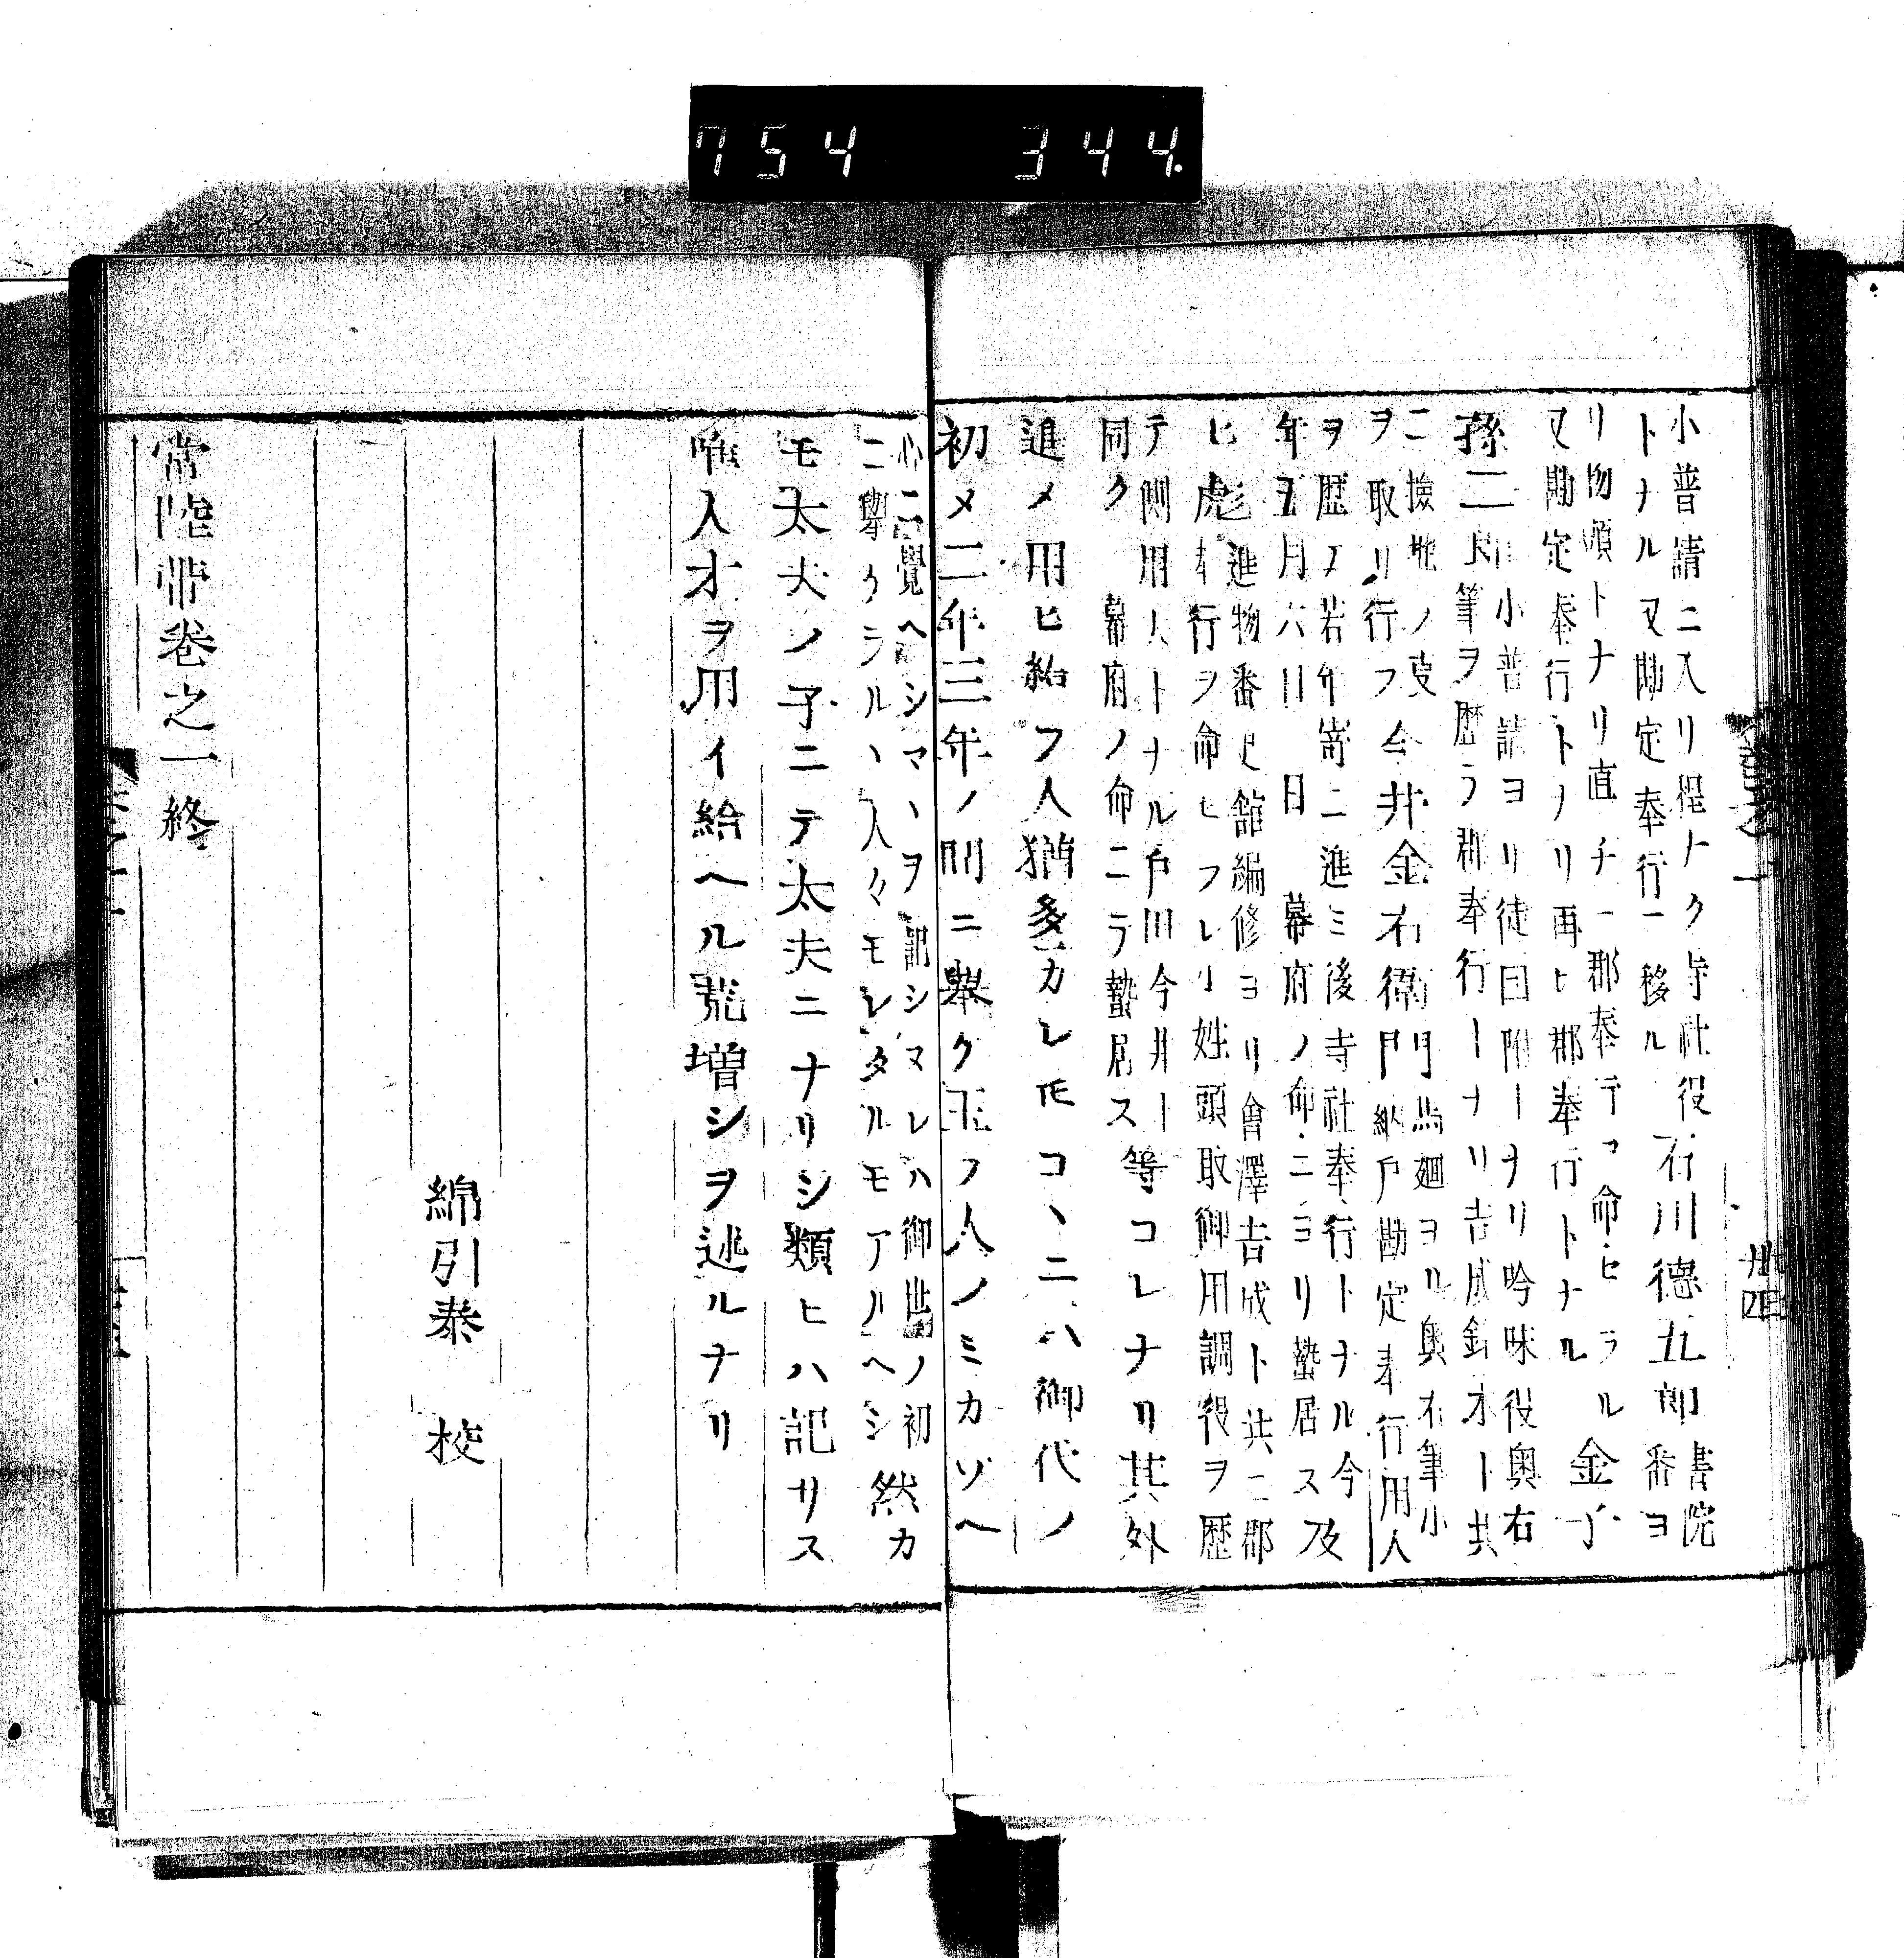 754 344
小普請ニ入リ程ナク寺社役
トナル又勘定奉行ニ移ル
石川德五郎
書院
番ヨ
リ物頭トナリ直チニ郡奉行ヲ命セラル
又勘定奉行トナリ再ヒ郡奉行トナル
金子
孫二郎
小普請ヨリ徒目附トナリ吟味役奥右
筆ヲ歴テ郡奉行トナリ吉成鈴木ト共
ニ檢地ノ叓
ヲ取リ行フ
今井金右衛門
馬廻ヨリ奥右筆小
納戸勘定奉行用人
ヲ歴テ若年寄ニ進ミ後寺社奉行トナル今
年五月六日 幕府ノ命ニヨリ蟄居ス
及
ヒ彪
進物番史館編修ヨリ會澤吉成ト共ニ郡
奉行ヲ命セラレ小姓頭取御用調役ヲ歴
テ側用人トナル戸川今井ト
同ク 幕府ノ命ニテ蟄居ス
等コレナリ其外
進メ用ヒ給フ人猶多カレ𪜈コヽニハ御代ノ
初メ二年三年ノ間ニ舉ク玉フ人ノミカゾヘ
心ニ覺ヘシマヽヲ記シヌレハ御世ノ初
ニ擧ケラルヽ人々モレタルモアルヘシ
然カ
モ太夫ノ子ニテ太夫ニナリシ類ヒハ記サス
唯人才ヲ用イ給ヘル荒増シヲ述ルナリ
綿引泰 校
常陸帶卷之一終
卅四